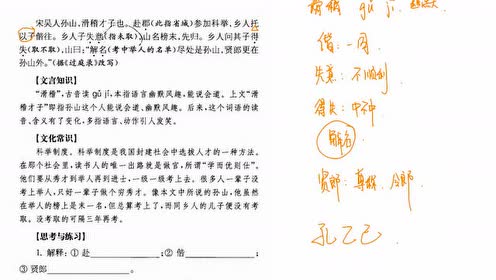 宋吴人孙山，滑稽才子也。赴郡(此指省城)参加科举，乡人托
以子偕往。乡人子失意(指未取)，山名榜末，先归。乡人问其子得
失(取不取)，山曰："解名(考中举人的名单)尽处是孙山，贤郎更在
孙山外。"(据《过庭录》改写)
【文言知识】
"滑稽"，古音读 gǔ jī，本指语言幽默风趣，能说会道。上文"滑
稽才子"即指孙山这个人能说会道、幽默风趣。后来，这个词语的读
音、含义有了变化，多指语言、动作引人发笑。
【文化常识】
科举制度。科举制度是我国封建社会中选拔人才的一种方法。
在那个社会里，读书人的唯一出路就是做官，所谓"学而优则仕"。
他们要从秀才到举人再到进士，一级一级考上去。很多人一辈子没
考上举人，只好一辈子做个穷秀才。像本文中所说的孙山，他虽然
在举人的榜上是末一名，但总算考上了，而同乡人的儿子便没有考
取。没考取的可隔三年再考。
【思考与练习】
1. 解释：① 赴 ；② 偕 ；
③ 贤郎
滑稽 gǔ jī.
偕：一同
失意：不顺利
得失：中不中
解名
贤郎：尊称, 令郎.
孔乙己